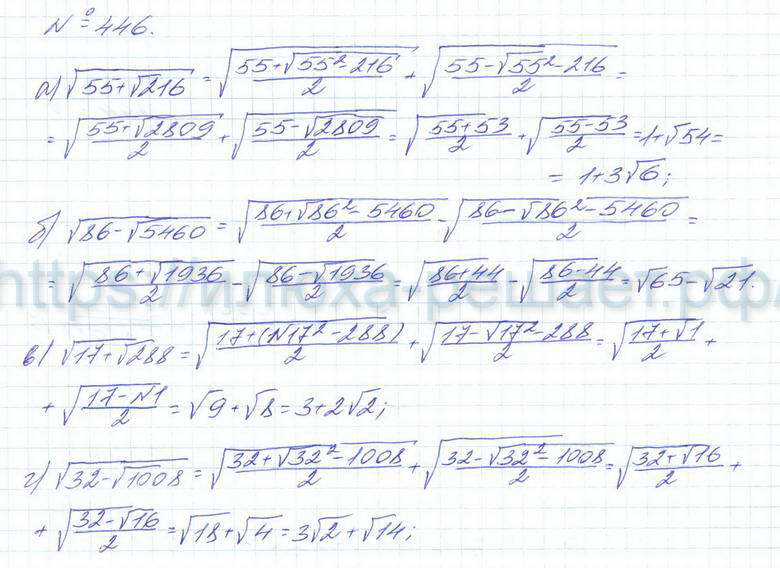 № 446.
а) √(55+√216) = √((55+√(55²-216))/2) + √((55-√(55²-216))/2) =
= √((55+√2809)/2) + √((55-√2809)/2) = √((55+53)/2) + √((55-53)/2) = 1+√54 =
= 1+3√6;
б) √(86-√5460) = √((86+√(86²-5460))/2) - √((86-√(86²-5460))/2) =
= √((86+√1936)/2) - √((86-√1936)/2) = √((86+44)/2) - √((86-44)/2) = √65-√21.
https://илюха-решает.рф/
в) √(17+√288) = √((17+(√(17²-288))/2) + √((17-√(17²-288))/2) = √((17+√1)/2) +
+ √((17-√1)/2) = √9+√8 = 3+2√2;
г) √(32-√1008) = √((32+√(32²-1008))/2) + √((32-√(32²-1008))/2) = √((32+√16)/2) +
+ √((32-√16)/2) = √18+√4 = 3√2+√14;